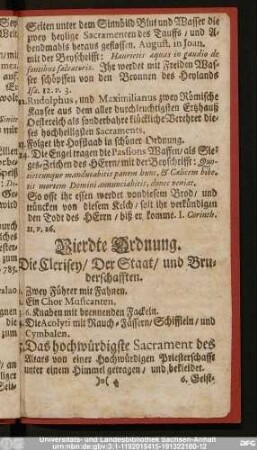 Seiten unter dem Sinnbild Blut und Wasser die
zwey heylige Sacramenten des Tauffs / und A-
bendmahls heraus geflossen. August. in Joan.
mit der Beyschrifft: Haurietis aquas in gaudio de
fontibus salvatoris. Ihr werdet mit Freiden Was-
ser schöpffen von den Bronnen des Heylands
Isa. 12. v. 3.
Rudolphus, und Maximilianus zwey Römische
Kayser aus dem aller durchleuchtigsten Ertzhauß
Oesterreich als sonderbahre glückliche Verehrer die-
ses hochheiligsten Sacraments.
Folget ihr Hofstaab in schöner Ordnung.
Die Engel tragen die Passions Waffen / als Sie-
ges-Zeichen des HErrn / mit der Beyschrifft: Quo-
tiescunque manducabitis panem hunc, & Calicem bibe-
tis mortem Domini annunciabitis, donec veniat.
So offt ihr essen werdet von diesem Brod / und
trincken von diesem Kelch / solt ihr verkündigen
den Todt des HErrn / biß er komme. I. Corinth.
11. v. 26.
Vierdte Ordnung.
Die Clerisey / Der Staat / und Bru-
derschafften.
Zwey Führer mit Fahnen.
Ein Chor Musicanten.
6. Knaben mit brennenden Fackeln.
Die Acolyti mit Rauch-Fässern / Schifflein / und
Cymbalen.
Das hochwürdigste Sacrament des
Altars von einer Hochwürdigen Priesterschafft
unter einem Himmel getragen / und bekleidet.
6. Geist-
Universitäts- und Landesbibliothek Sachsen-Anhalt
urn:nbn:de:gbv:3:1-1192015415-191322180-12